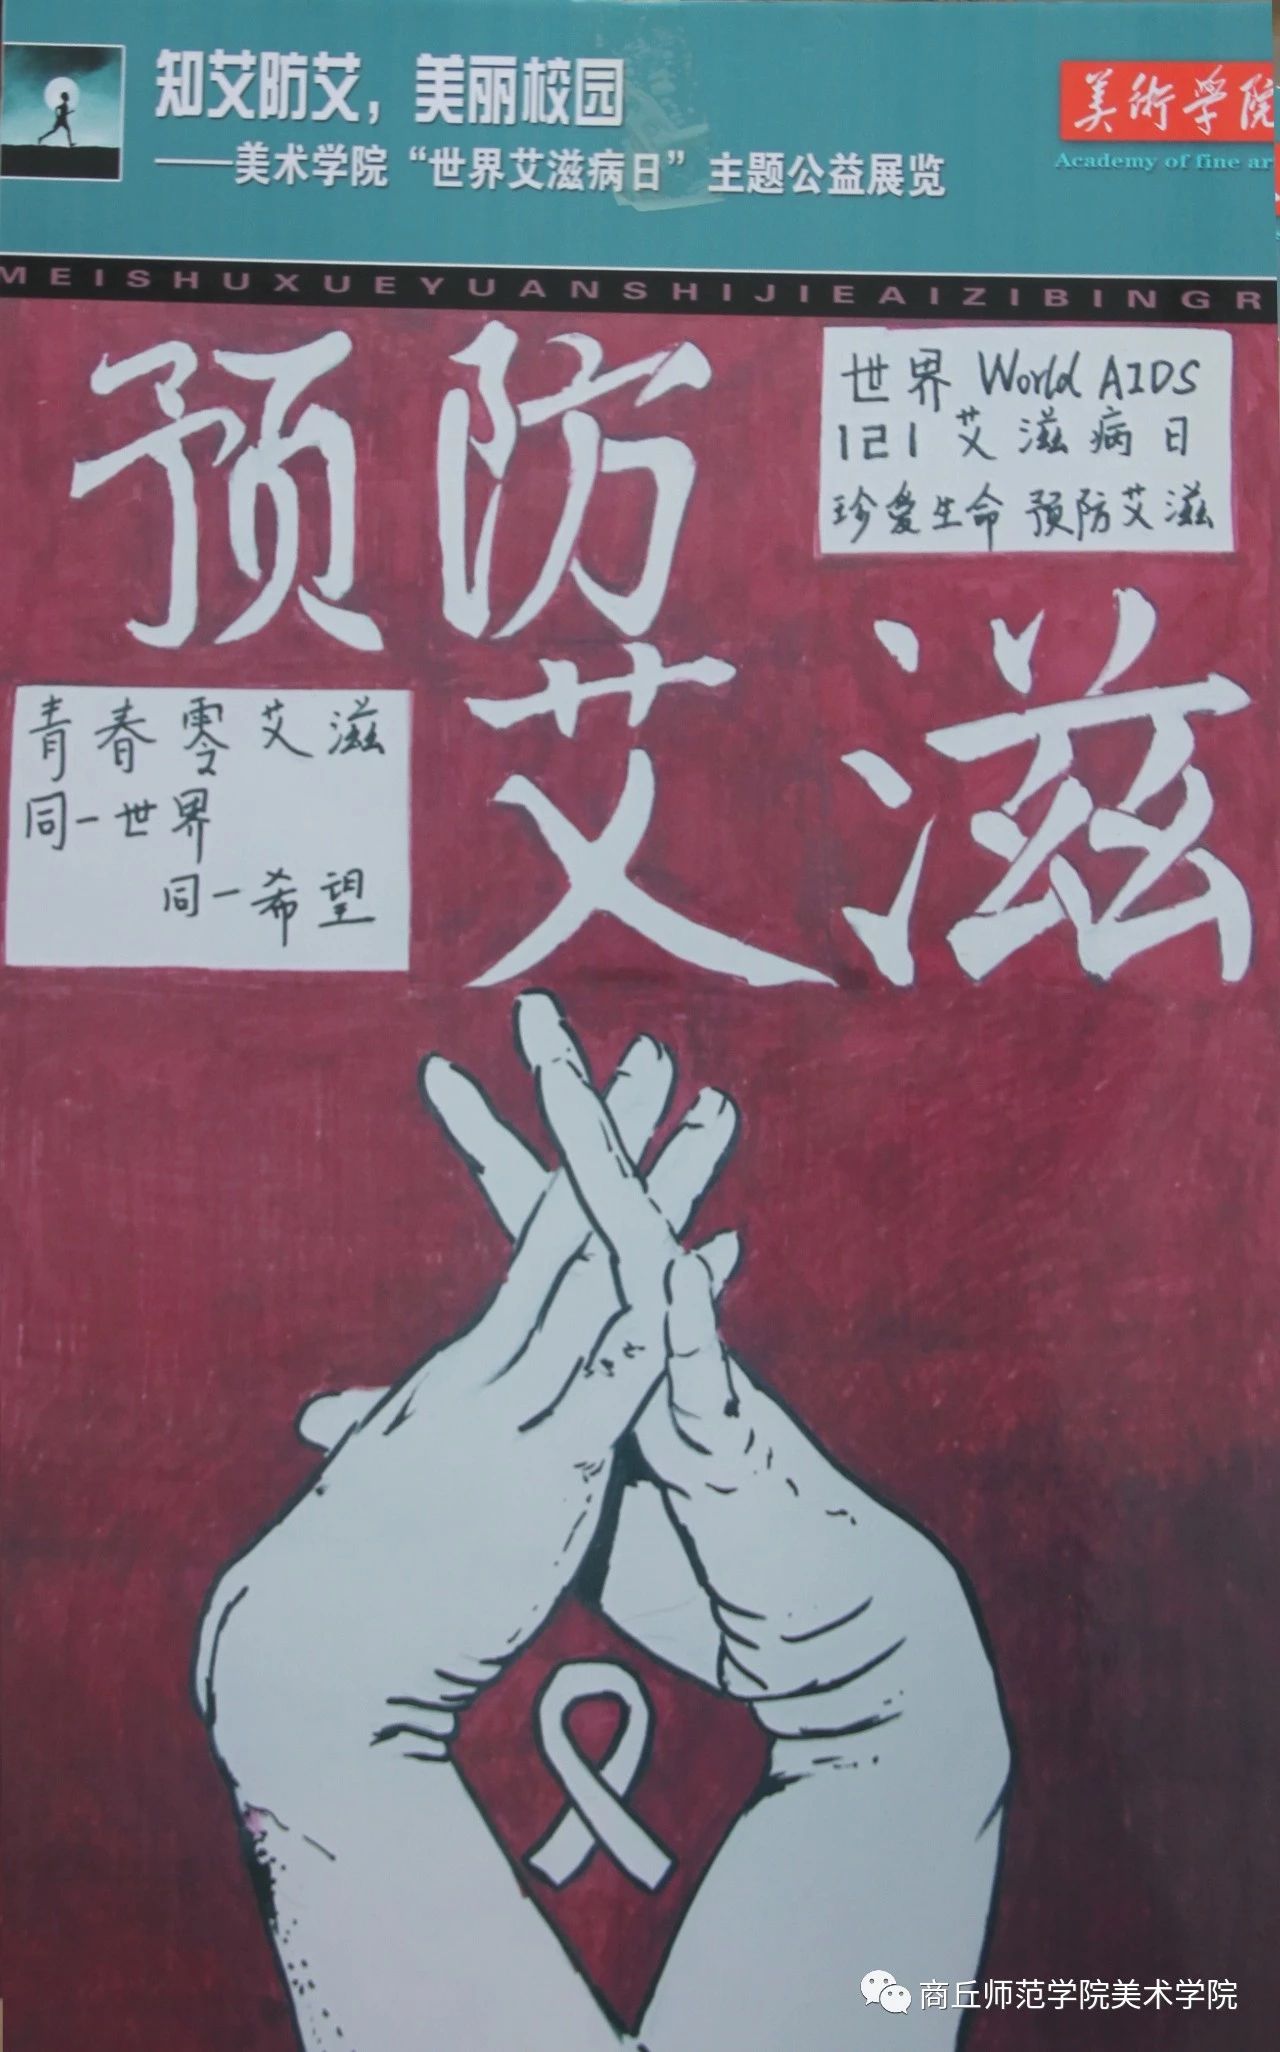 知艾防艾，美丽校园
——美术学院“世界艾滋病日”主题公益展览
美術学院
Academy of fine ar
MEISHUXUEYUANSHIJIEAIZIBINGR
预防
艾滋
世界 World AIDS
121 艾滋病日
珍爱生命 预防艾滋
青春零艾滋
同一世界
同一希望
商丘师范学院美术学院